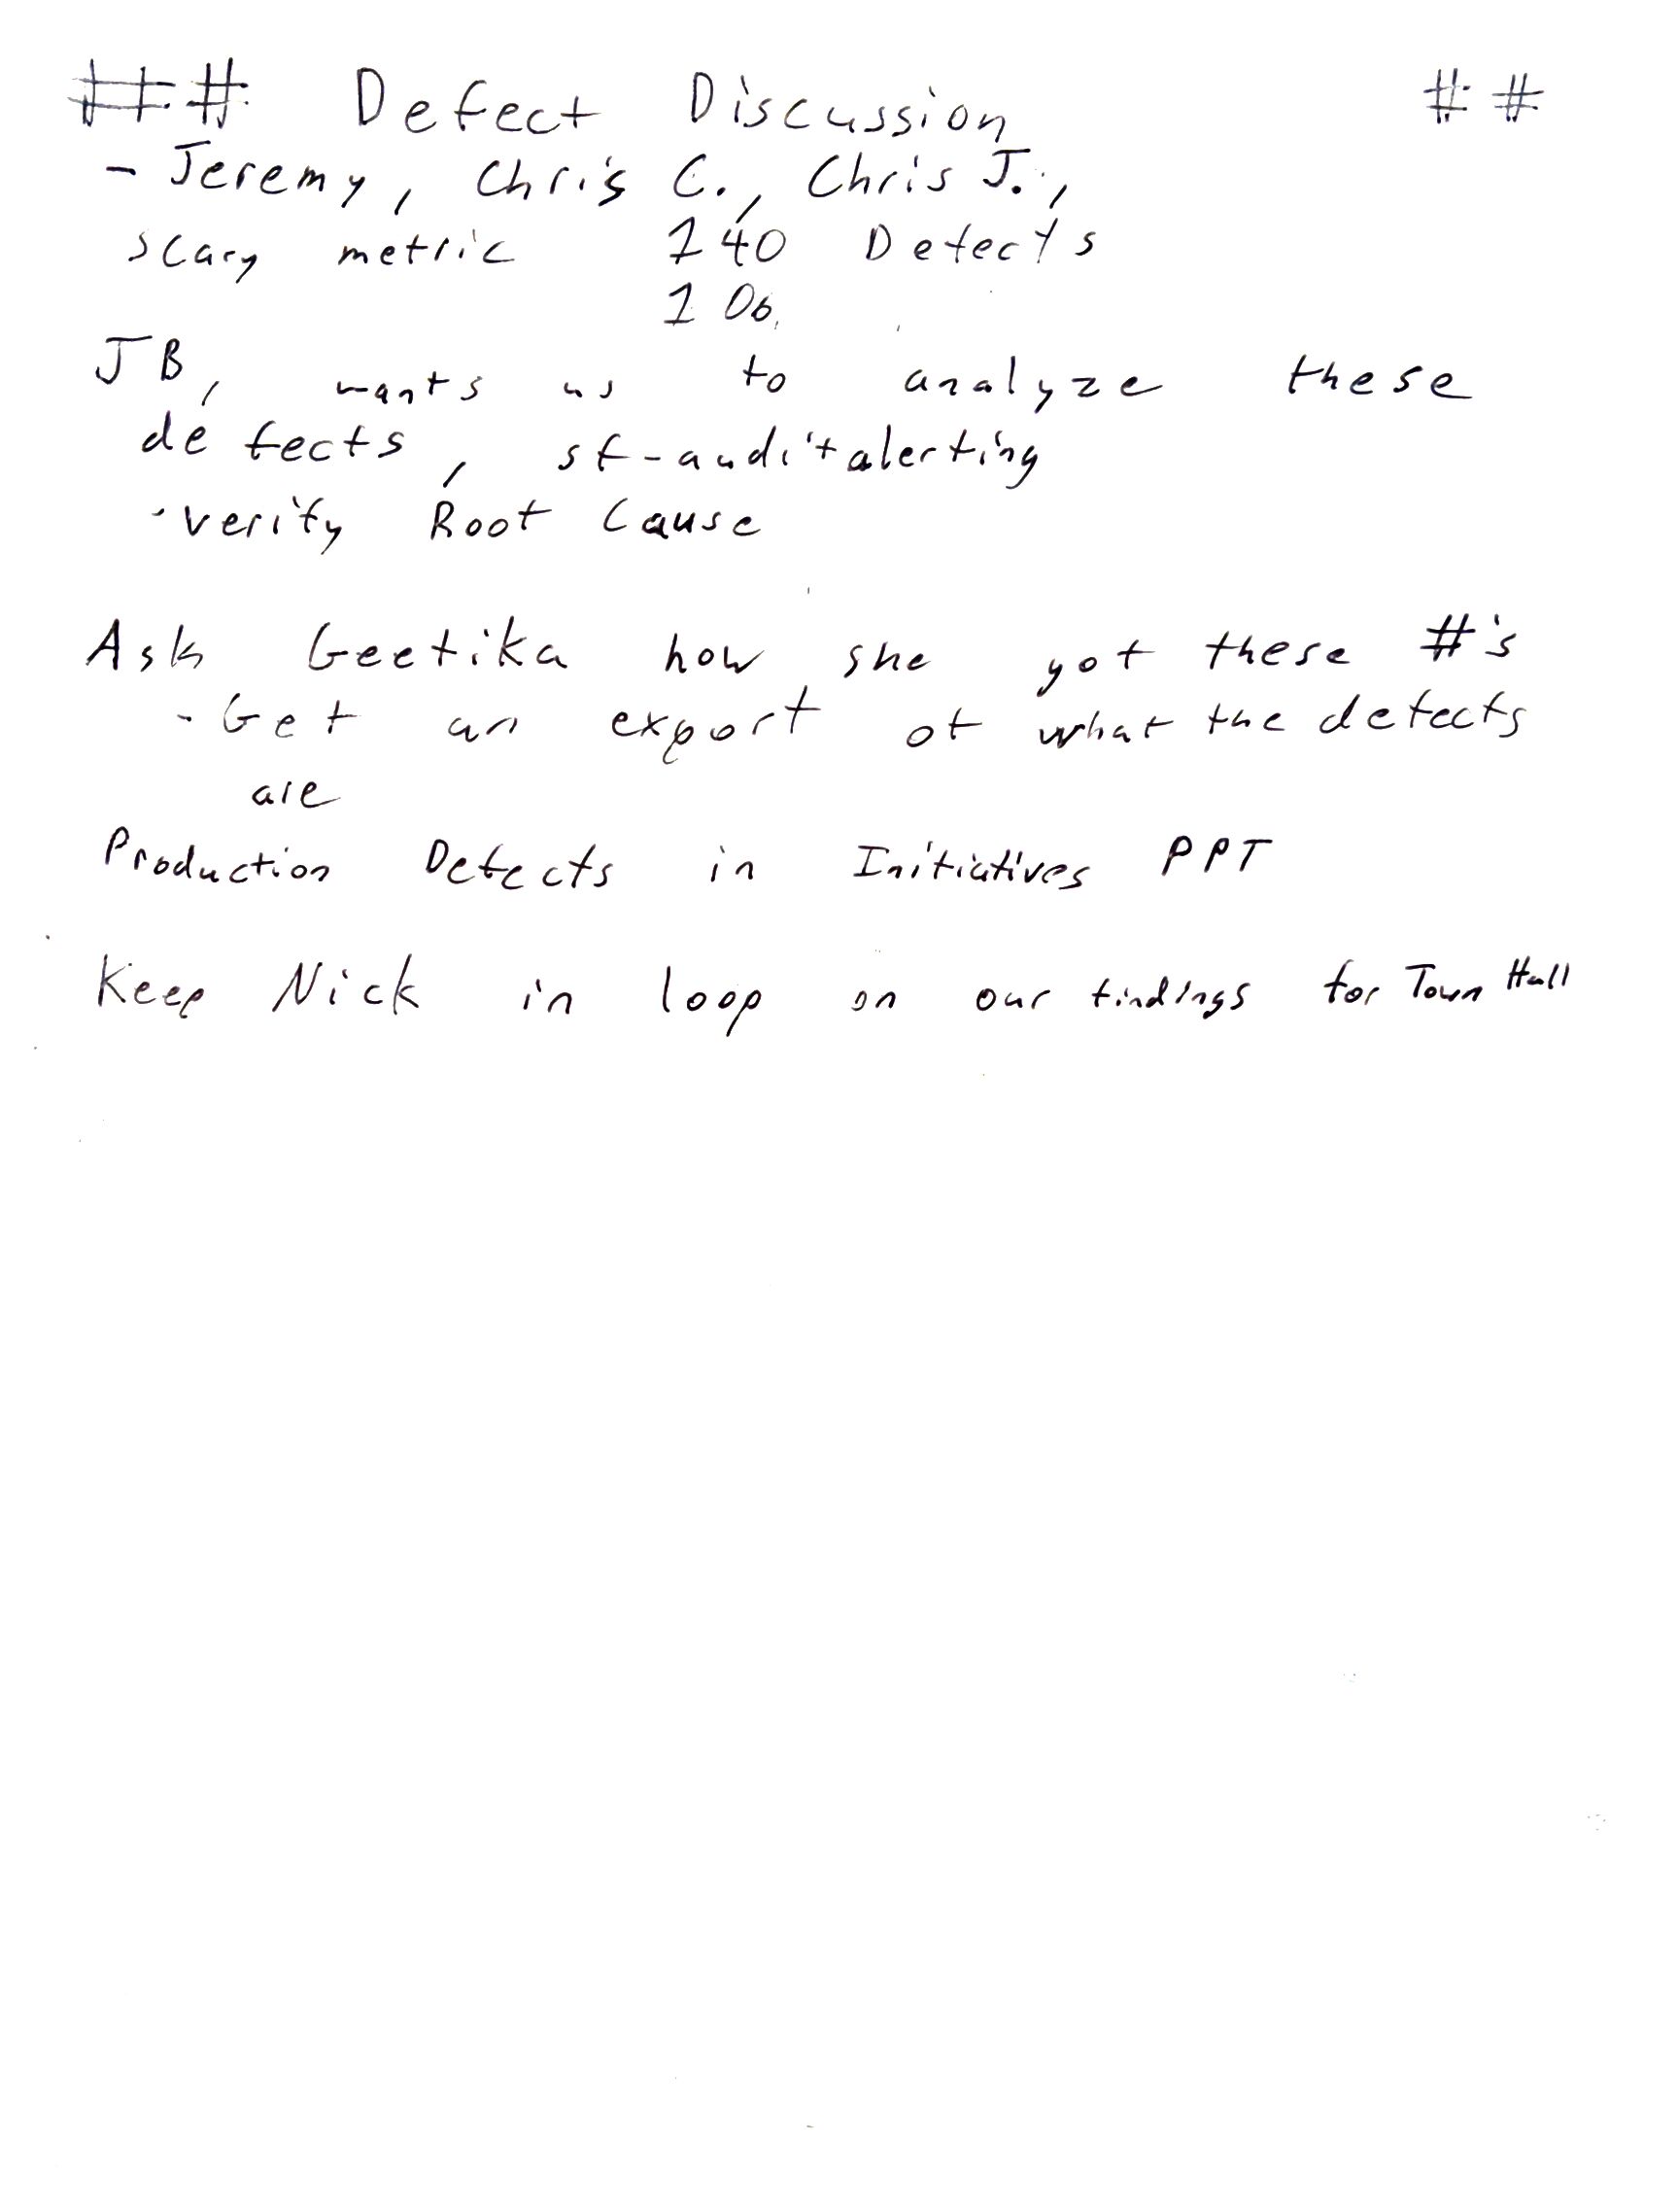 ## Defect Discussion ##
- Jeremy, Chris C., Chris J.,
scary metric 140 Defects
100
JB, wants us to analyze these
defects, sf-auditalerting
- verify Root Cause
Ask Geetika how she got these #'s
- Get an export of what the defects
are
Production Defects in Initiatives PPT
Keep Nick in loop on our findings for Town Hall